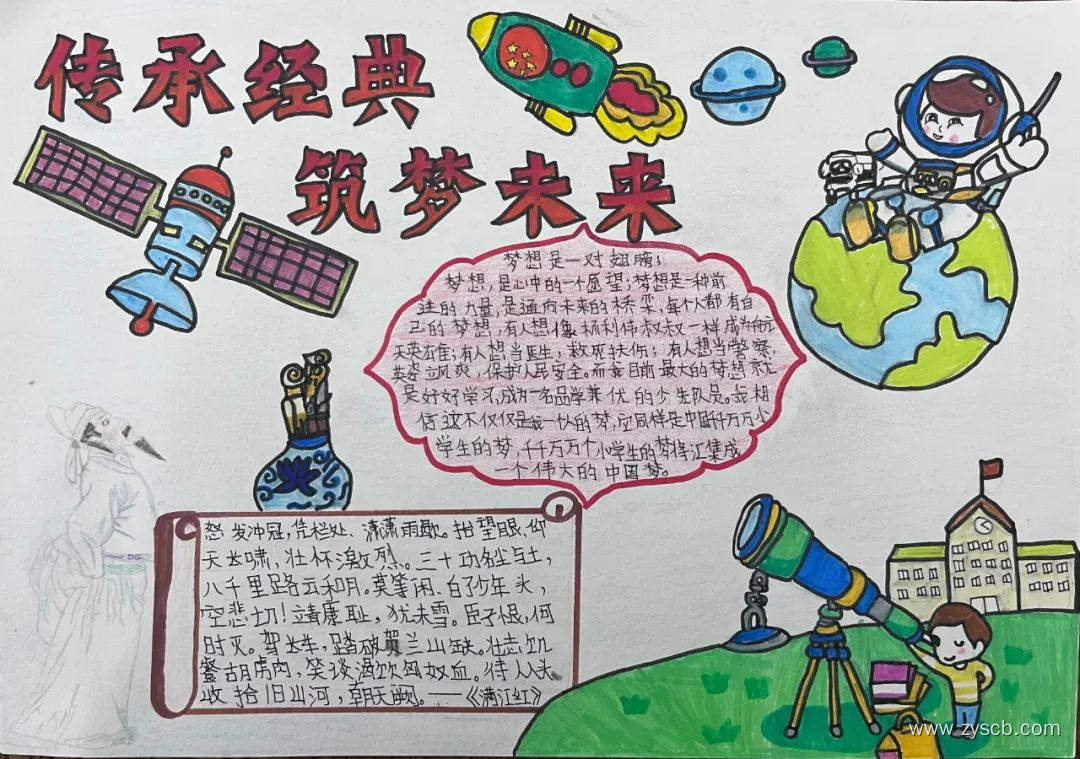 传承经典
筑梦未来
梦想是一对翅膀；
梦想，是心中的一个愿望；梦想是一种前
进的力量，是通向未来的桥梁，每个人都有自
己的梦想，有人想像杨利伟叔叔一样成为航
天英雄；有人想当医生，救死扶伤；有人想当警察，
英姿飒爽，保护人民安全。而我目前最大的梦想就
是好好学习，成为一名品学兼优的少先队员。我相
信这不仅仅是我一个人的梦，它同样是中国千千万万小
学生的梦，千千万万个小学生的梦将汇集成
一个伟大的中国梦。
怒发冲冠，凭栏处、潇潇雨歇。抬望眼、仰
天长啸，壮怀激烈。三十功名尘与土，
八千里路云和月。莫等闲、白了少年头，
空悲切！靖康耻，犹未雪。臣子恨，何
时灭。驾长车，踏破贺兰山缺。壮志饥
餐胡虏肉，笑谈渴饮匈奴血。待从头
收拾旧山河，朝天阙。——《满江红》
www.zyscb.com